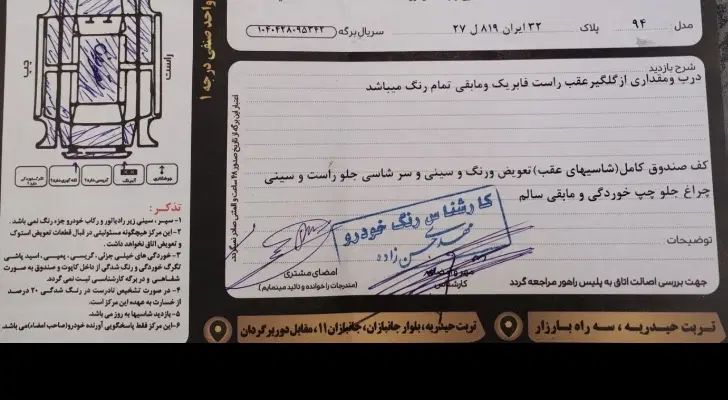 مدل ۹۴ پلاک ۳۲ ایران ۸۱۹ ل ۲۷ سریال برگه ۱۰۴۰۴۲۸۰۹۵۳۴۲
واحد صنفی درجه ۱
راست
چپ
شرح بازدید
درب ومقداری ازگلگیرعقب راست فابریک ومابقی تمام رنگ میباشد
کف صندوق کامل(شاسیهای عقب)تعویض ورنگ و سینی و سر شاسی جلو راست و سینی
چراغ جلو چپ خوردگی و مابقی سالم
کارشناس رنگ خودرو
مهدی حسن زاده
توضیحات
امضای مشتری
(مندرجات را خوانده و تائید مینمایم)
کارشناس
جهت بررسی اصالت اتاق به پلیس راهور مراجعه گردد
تذکر :
۱- سپر، سینی زیر رادیاتور و رکاب خودرو جزء رنگ نمی باشد.
۲- این مرکز هیچگونه مسئولیتی در قبال قطعات تعویض استوک
و تعویض اتاق نخواهد داشت.
۳- خوردگی های خیلی جزئی، گریسی، پمپی، اسید پاشی
تگرگ خوردگی و رنگ شدگی از داخل کاپوت و صندوق به صورت
شفاهی و در برگه کارشناسی ثبت نمی گردد.
۴- در صورت تشخیص نادرست در رنگ شدگی ۲۰ درصد
از خسارت به عهده این مرکز است.
۵- بازدید شاسیها به روز می باشد.
۶- این مرکز فقط پاسخگویی آورنده خودرو(صاحب امضاء)می باشد.
تربت حیدریه ، سه راه بارزار
تربت حیدریه، بلوار جانبازان، جانبازان ۱۱، مقابل دوربرگردان